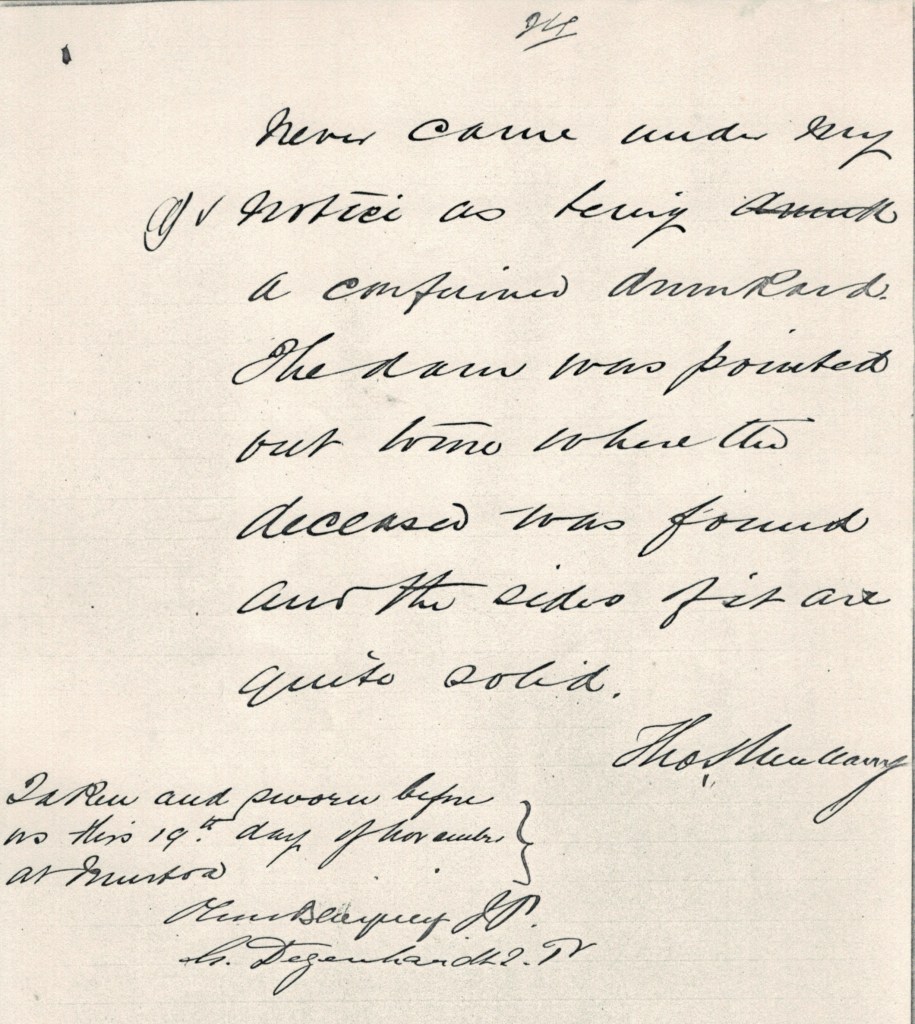 never came under my
notice as being drunk
a confirmed drunkard.
The dam was pointed
out to me where the
deceased was found
and the sides of it are
quite solid.
Thos
Taken and sworn before
us this 19th day of November
at Murtoa
J.P.
G. Degenhardt J.P.